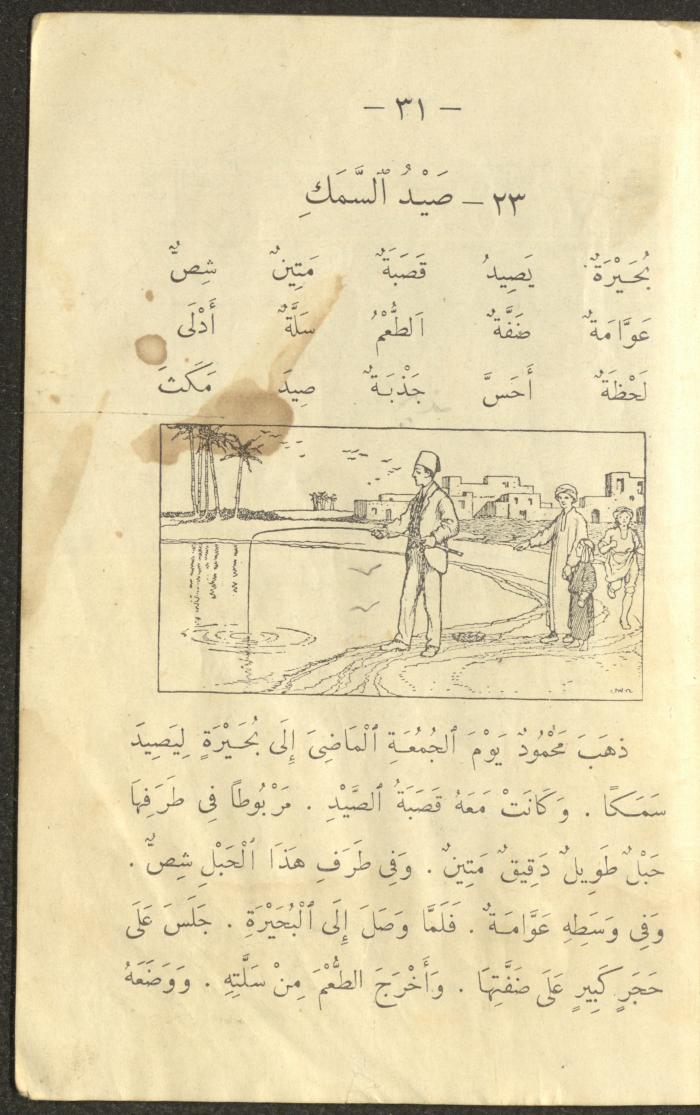 — ٣١ —
٢٣ — صَيْدُ ٱلسَّمَكِ
بُحَيْرَةٌ يَصِيدُ قَصَبَةٌ مَتِينٌ شِصٌّ
عَوَّامَةٌ ضَفَّةٌ اَلطُّعْمُ سَلَّةٌ أَدْلَى
لَحْظَةٌ أَحَسَّ جَذْبَةٌ صِيدَ مَكَثَ
ذهَبَ مَحْمُودٌ يَوْمَ ٱلجُمُعَةِ ٱلْمَاضِىَ إِلَى بُحَيْرَةٍ لِيَصِيدَ
سَمَكًا . وَكَانَتْ مَعَهُ قَصَبَةُ ٱلصَّيْدِ . مَرْبُوطاً فِى طَرَفِهَا
حَبْلٌ طَوِيلٌ دَقِيقٌ مَتِينٌ . وَفِى طَرَفِ هَذَا ٱلْحَبْلِ شِصٌّ .
وَفِى وَسَطِهِ عَوَّامَةٌ . فَلَمَّا وَصَلَ إِلَى ٱلْبُحَيْرَةِ . جَلَسَ عَلَى
حَجَرٍ كَبِيرٍ عَلَى ضَفَّتِهَا . وَأَخْرَجَ الطُّعْمَ مِنْ سَلَّتِهِ . وَوَضَعَهُ